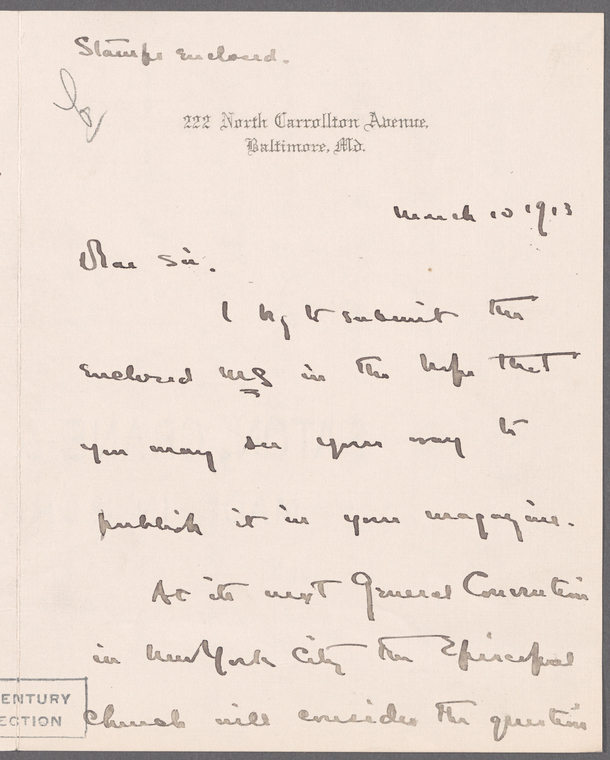 Stamps enclosed.
222 North Carrollton Avenue,
Baltimore, Md.
March 10 1913
Dear Sir.
I beg to submit the
enclosed MS in the hope that
you may see your way to
publish it in your magazine.
At its next General Convention
in New York City the Episcopal
Church will consider the question
ENTURY
ECTION